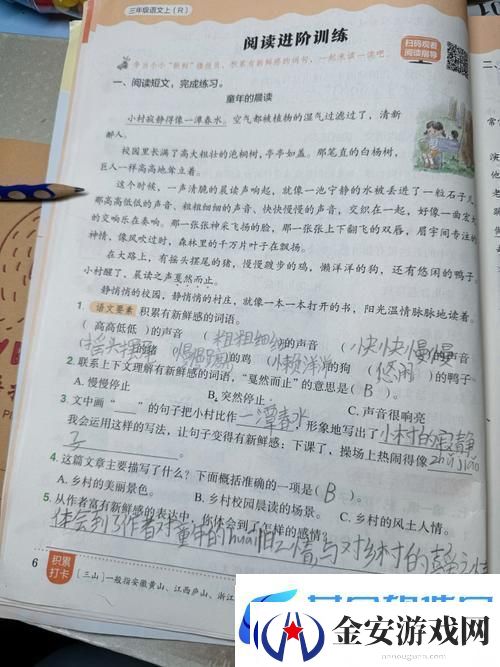 三年级语文上(R)
阅读进阶训练
扫码观看
阅读指导
争当小小“新鲜”播报员,积累有新鲜感的词句,一起来读一读吧。
一、阅读短文,完成练习。
童年的晨读
小村寂静得像一潭春水。空气都被植物的湿气过滤过了,清新
醉人。
校园里长满了高大粗壮的泡桐树,亭亭如盖。那笔直的白杨树,
巨人一样高高地耸立着。
这个时候,一声清脆的晨读声响起,就像一池宁静的水被丢进了一粒石子儿
那高高低低的声音、粗粗细细的声音、快快慢慢的声音,交织在一起,好像一曲宏
的交响乐在奏响。那一张张神采飞扬的脸,那一张张上下翻飞的双唇,眉宇间专注的
神情,像风吹过时,森林里的千万片叶子在飘扬。
在大路上,有摇头摆尾的猪,慢慢踱步的鸡,懒洋洋的狗,还有悠闲的鸭子
小村醒了,晨读之声戛然而止。
静悄悄的校园,静悄悄的村庄,就像一本一本打开的书,阳光温情脉脉地读着。
1. 语文要素 积累有新鲜感的词语。
(高高低低)的声音 (粗粗细细)的声音 (快快慢慢)的声音
(摇头摆尾)的猪 (慢慢踱步)的鸡 (懒洋洋)的狗 (悠闲)的鸭子
2. 联系上下文理解有新鲜感的词语,“戛然而止”的意思是( B )。
A. 慢慢停止 B. 突然停止 C. 声音很响亮
3. 文中画“___”的句子把小村比作一潭春水,形象地写出了小村的寂静
我会运用这样的写法,让句子变得有新鲜感:下课了,操场上热闹得像zhǔ jiǎo
子
4. 这篇文章主要描写了什么?下面概括准确的一项是( B )。
A. 乡村的美丽景色。 B. 乡村校园晨读的场景。 C. 乡村的风土人情。
5. 从作者富有新鲜感的表达中,你体会到了怎样的感情?
体会到了作者对童年的huái旧之情与对乡村的
6
积累
打卡
[三山]一般指安徽黄山、江西庐山、浙江
金安游戏网